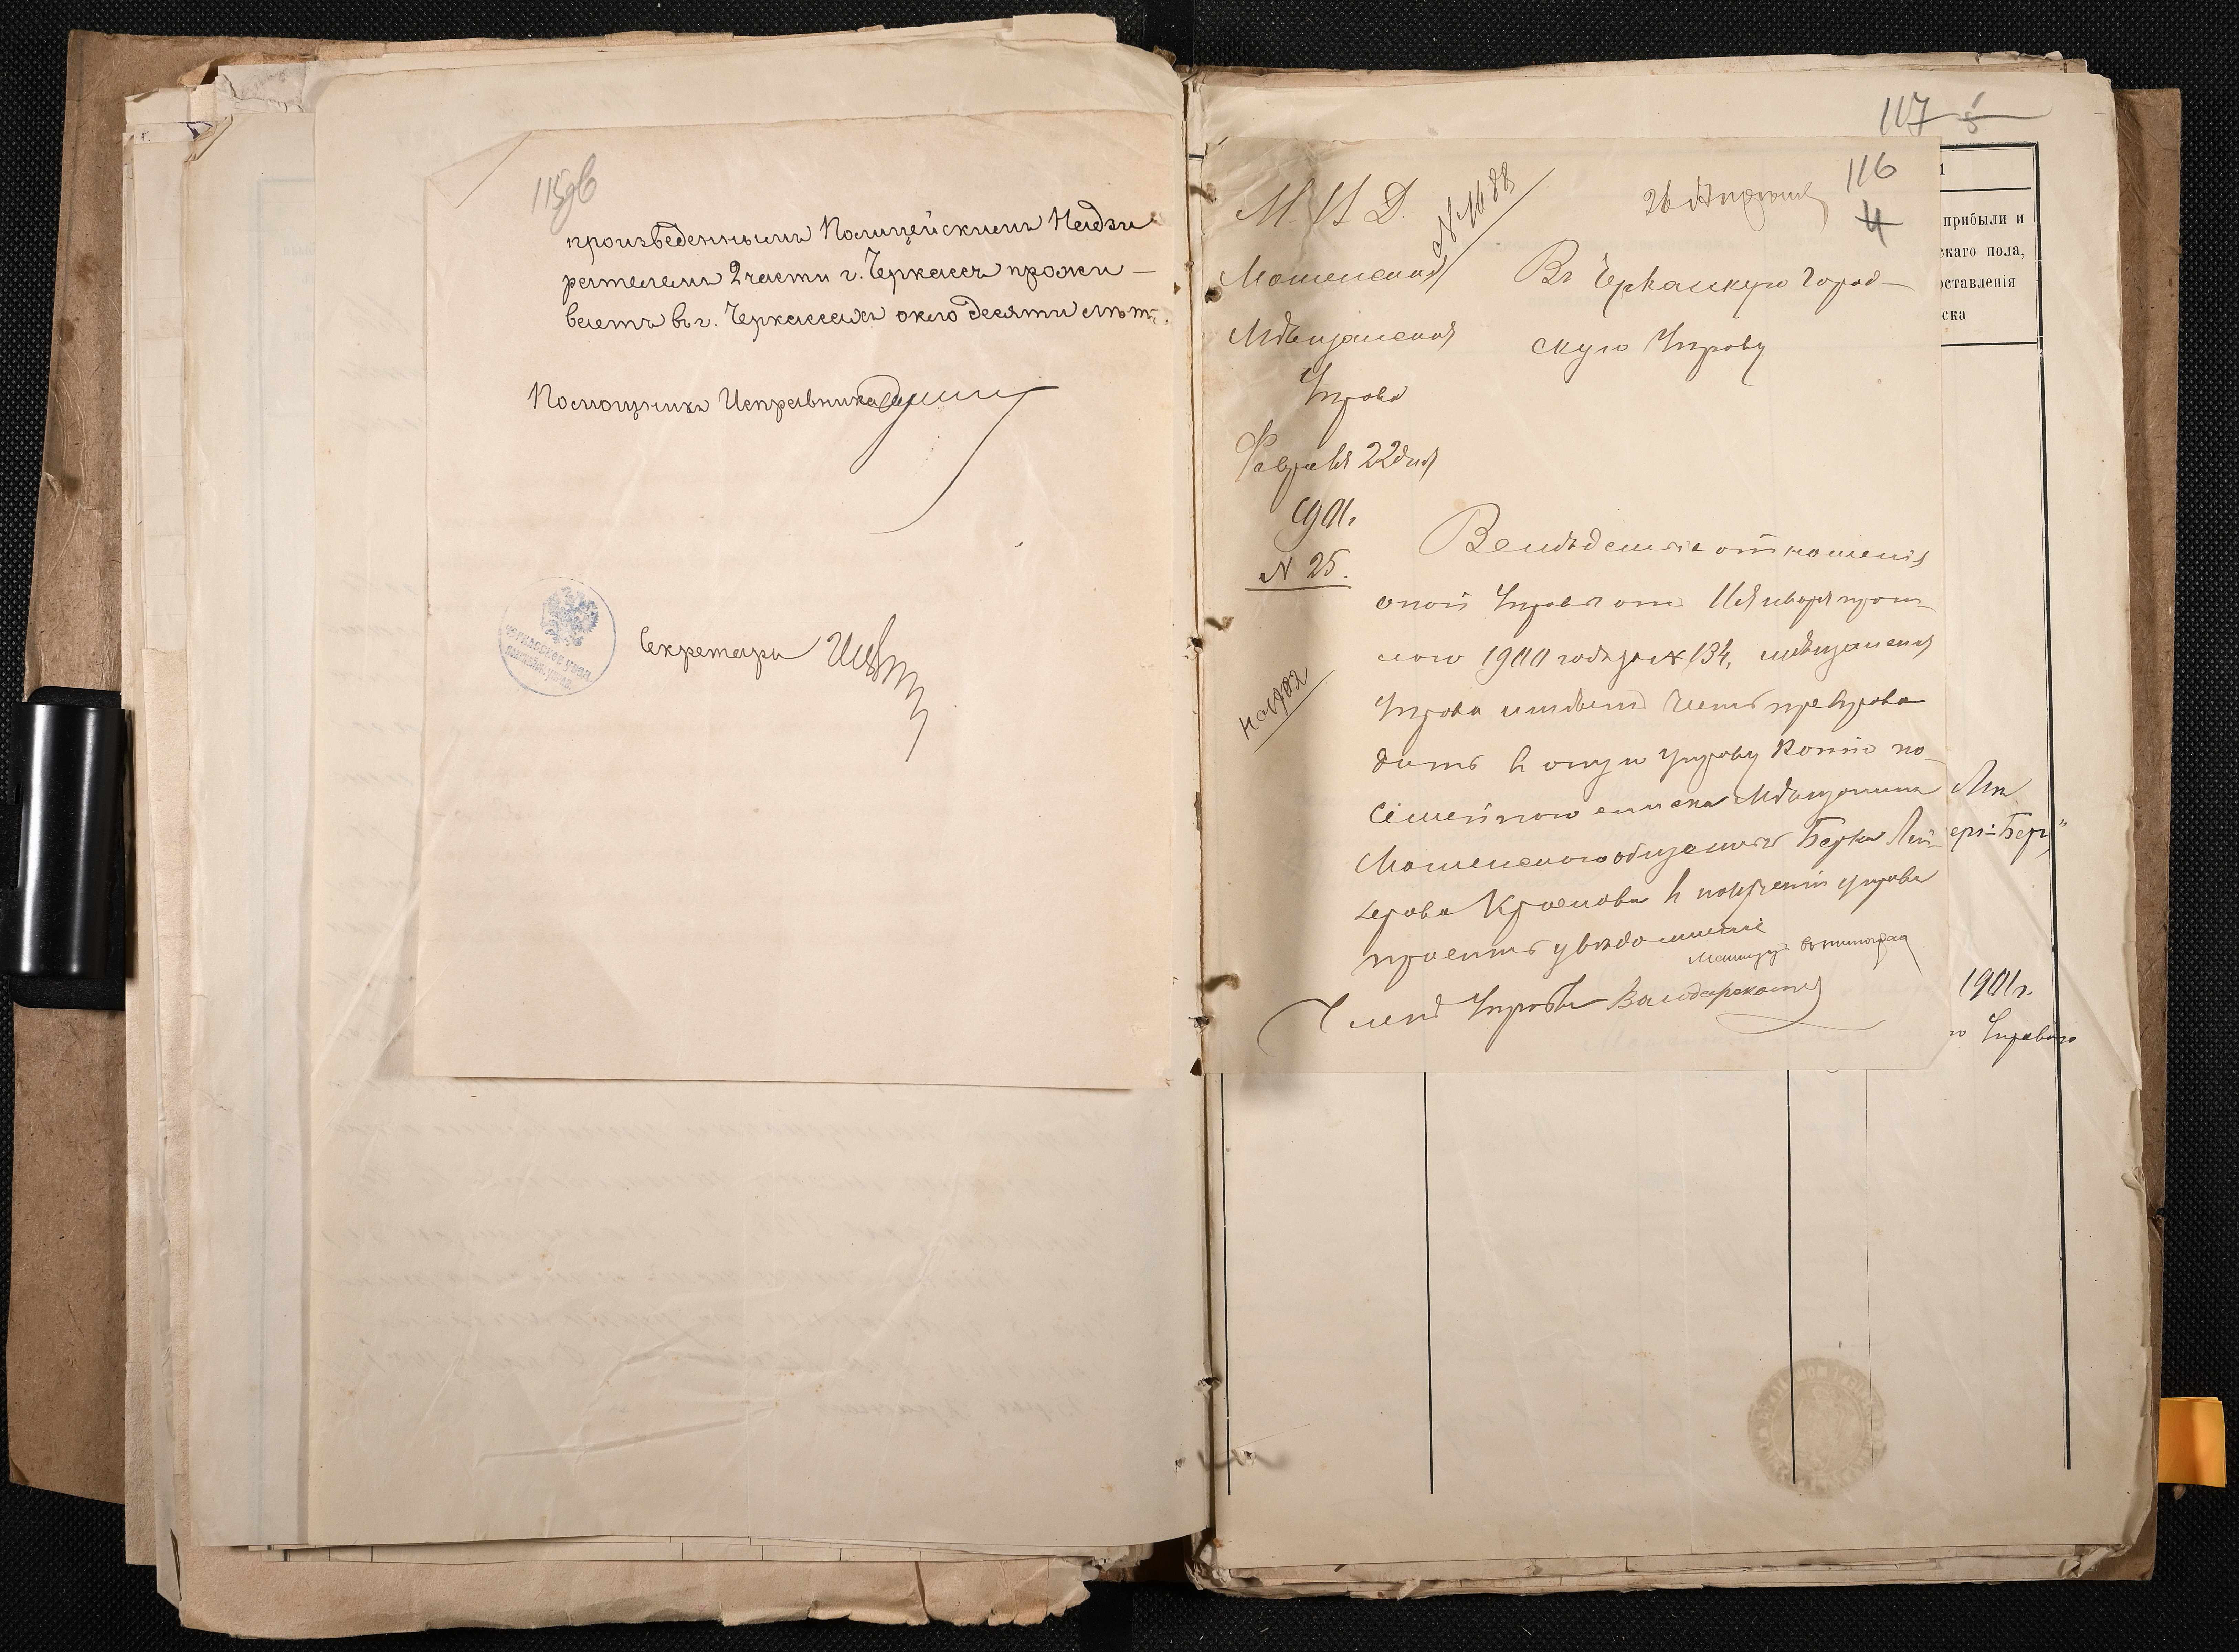 115об
произведеннымъ Полицейскимъ Надзи
рателемъ 2 части г. Черкассъ прожи—
ваетъ въ г. Черкассахъ около десяти лѣтъ.
Помощникъ Исправника
Секретарь
117
116
4
М. В. Д.
№ 1688
Мошенская
Мѣщанская
Управа
Февраля 22 дня
1901 г.
№ 25.
Въ Черкасскую Город—
скую Управу
Вслѣдствіе отношенія
оной Управы отъ 11 Января прош—
лаго 1900 года за № 134, мѣщанская
Управа имѣетъ честь препрово
дить въ оную управу копію по—
семейнаго списка Мѣщанина
Мошенскаго общества Берка Лей—
зерова Краснова въ полученіи управа
проситъ увѣдомленіе
Членъ Управы
прибыли и
скаго пола,
оставленія
ска
1901 г.